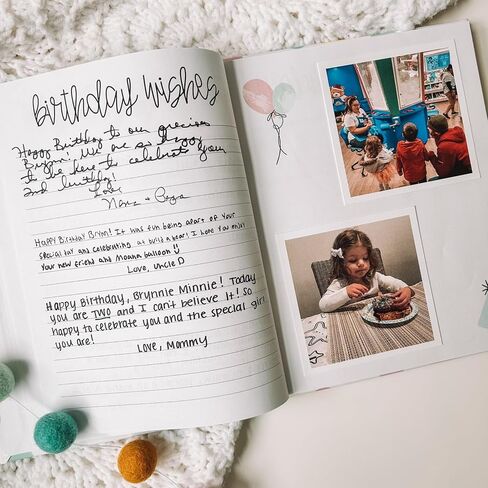 birthday wishes
Happy Birthday to our precious
Brynn! We are so happy
to be here to celebrate your
2nd birthday!
Love
Nana + Pops
Happy Birthday Brynn! It was fun being apart of your
special day and celebrating at build a bear! I hope you enjoy
your new friend and Moana balloon
Love, Uncle D
Happy Birthday, Brynnie Minnie! Today
you are TWO and I can't believe it! So
happy to celebrate you and the special girl
you are!
Love, Mommy